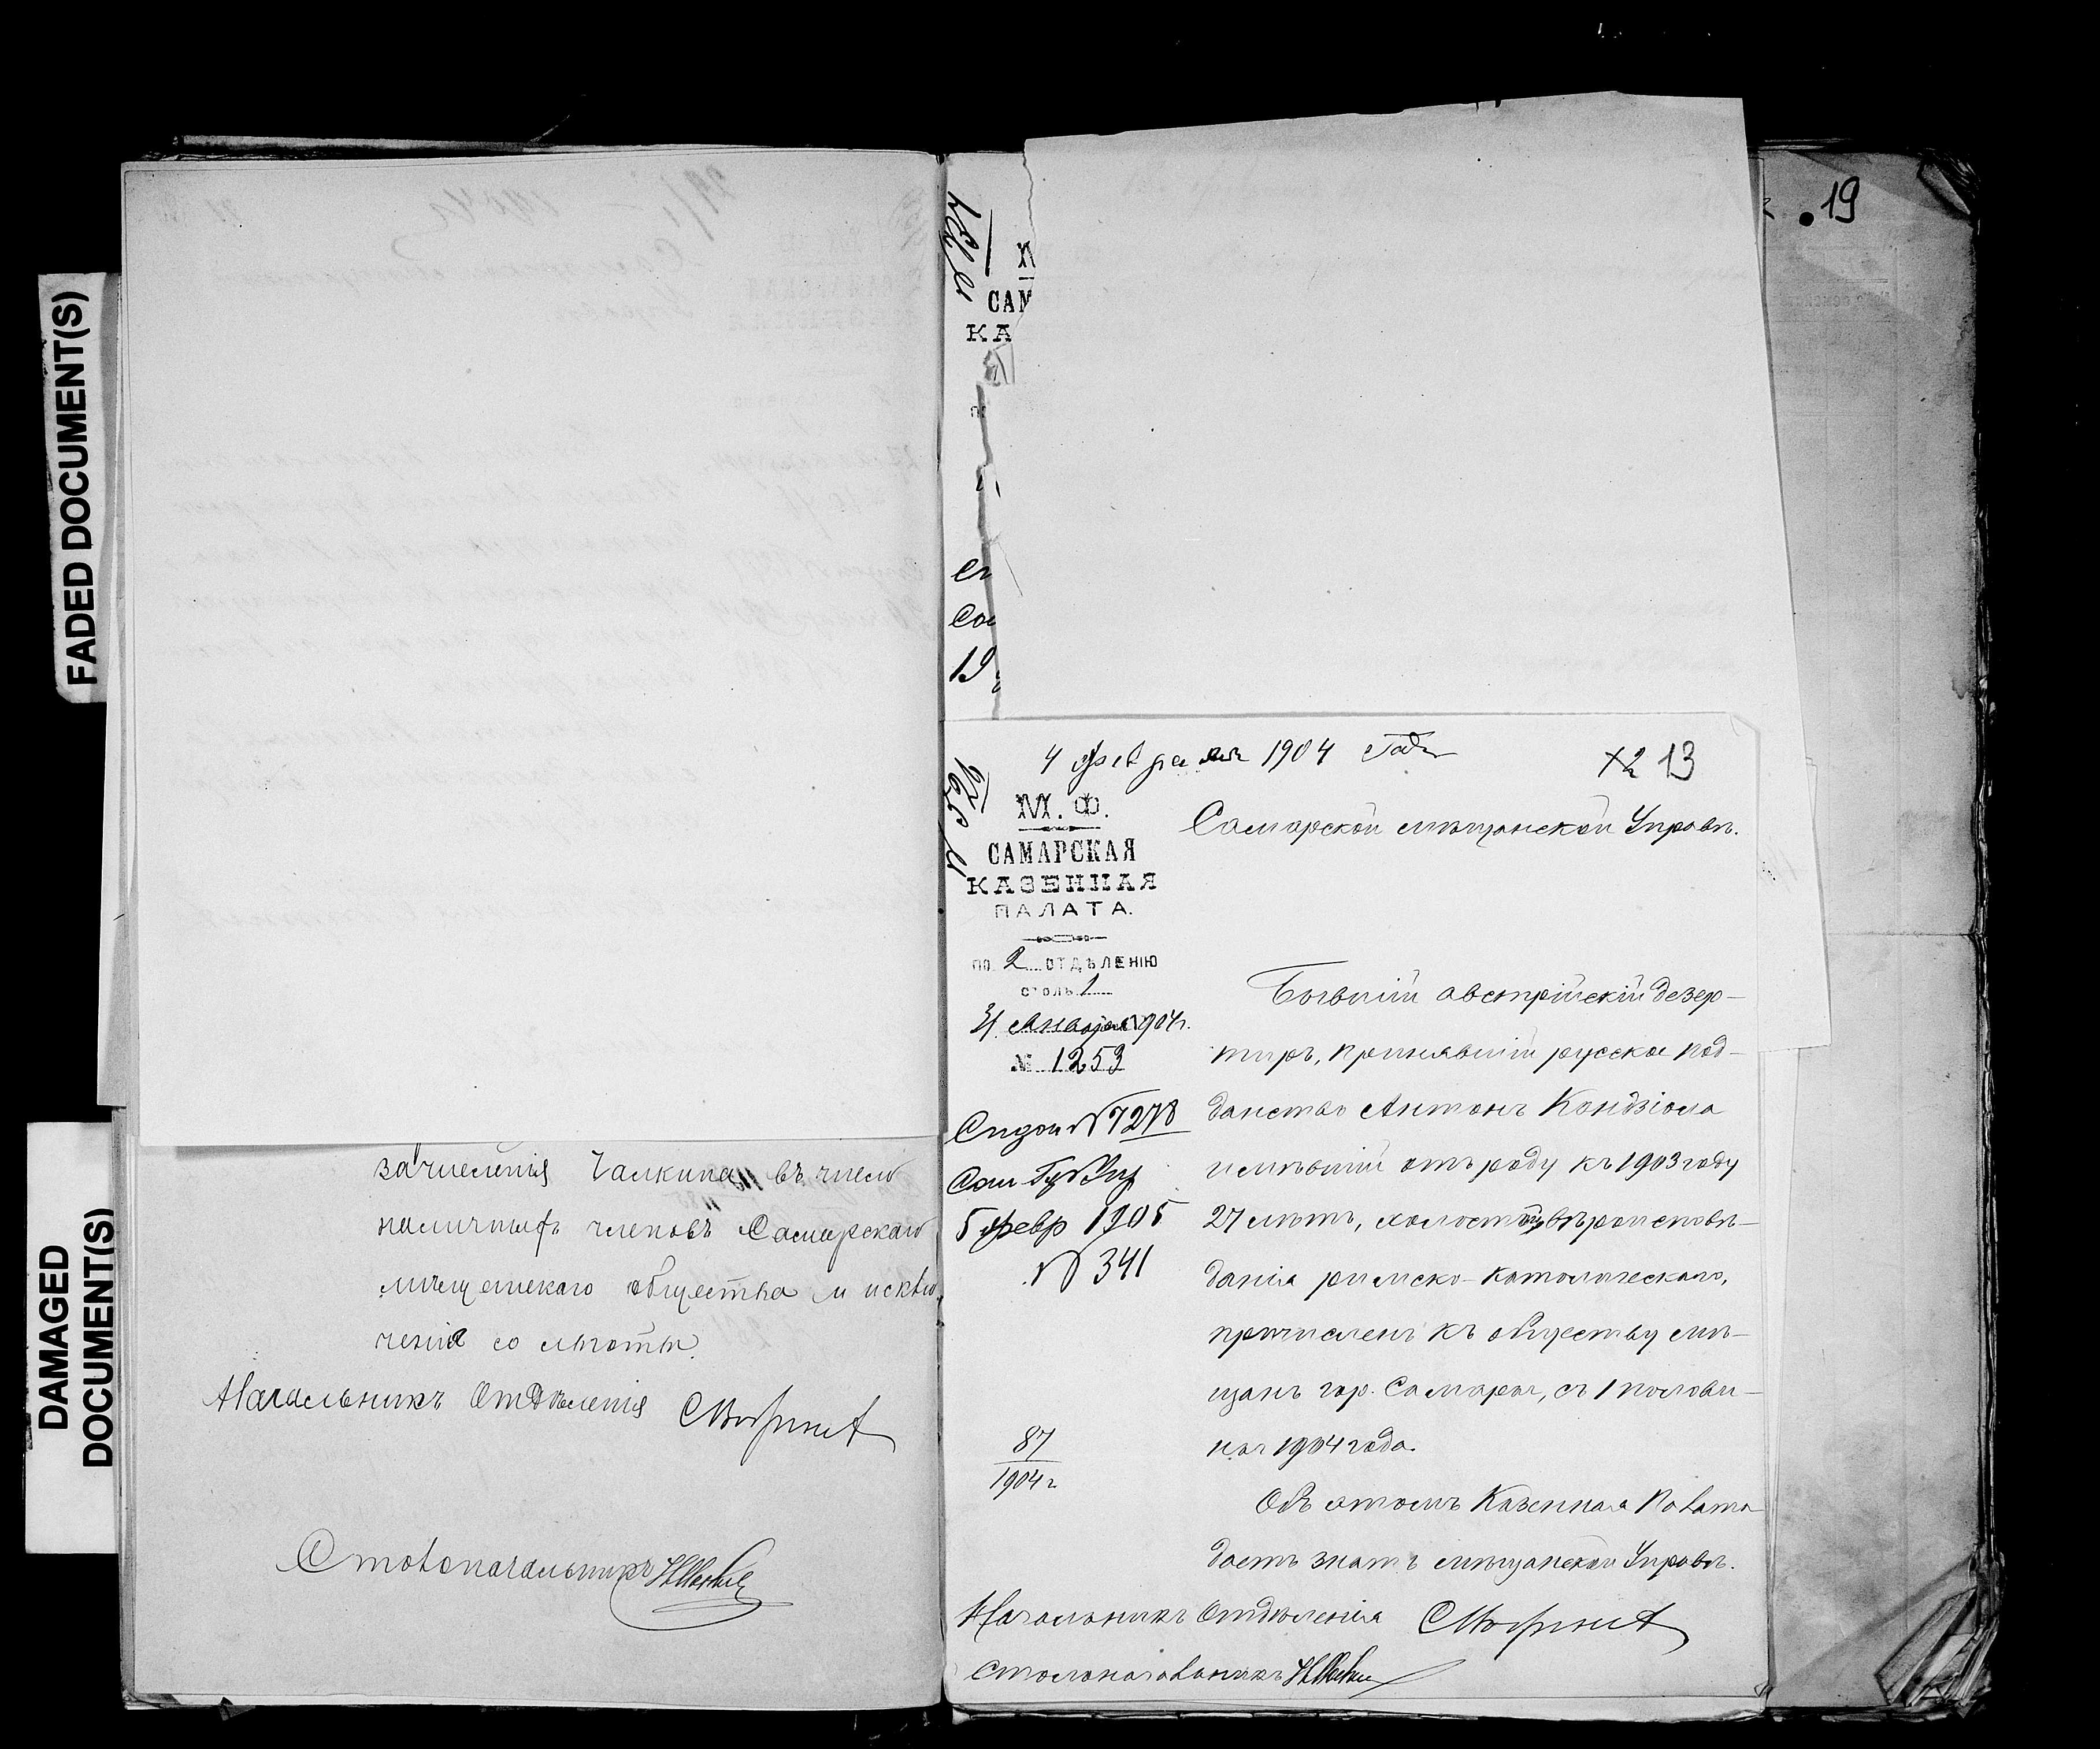 FADED DOCUMENT(S)
DAMAGED
DOCUMENT(S)
зачисленія Чалкина въ число
наличныхъ членовъ Самарскаго
мѣщанскаго общества и исклю-
ченія со льготы.
Начальникъ Отдѣленія
Столоначальникъ
САМ
КА
19
19
4 февраля 1904 года
13
М. Ф.
САМАРСКАЯ
КАЗЕННАЯ
ПАЛАТА.
по 2 ОТДѢЛЕНІЮ
столъ 1
31 Января 1904 г.
№ 1253
№ 7278
5 февр 1905
№ 341
87
1904 г
Самарской мѣщанской Управѣ.
Бывшій австрійскій дезер-
тиръ, принявшій русское под-
данство Антонъ Кондзіола
имѣвшій отъ роду къ 1903 году
27 лѣтъ, холостой, вѣроисповѣ-
данія римско-католическаго,
причисленъ къ обществу мѣ-
щанъ гор. Самары, съ 1 полови-
ны 1904 года.
Объ этомъ Казенная Палата
даетъ знать мѣщанской Управѣ.
Начальникъ Отдѣленія
Столоначальникъ